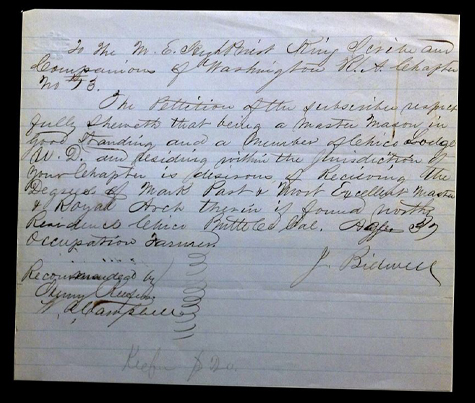 To the M. E. High Priest King Scribe and
Companions of Washington R. A. Chapter
No 13.
The Petition of the subscriber respect
fully sheweth that being a Master Mason in
good Standing and a Member of Chico Lodge
W. D. and Residing within the Jurisdiction of
your Chapter is desirous of Recieving the
Degrees of Mark Past & Most Excellent Master
& Royal Arch therein if found worthy
Residence Chico Butte Co Cal. Age 37
Occupation Farmer
J Bidwell
Recommended by
Henry
W. A. Campbell